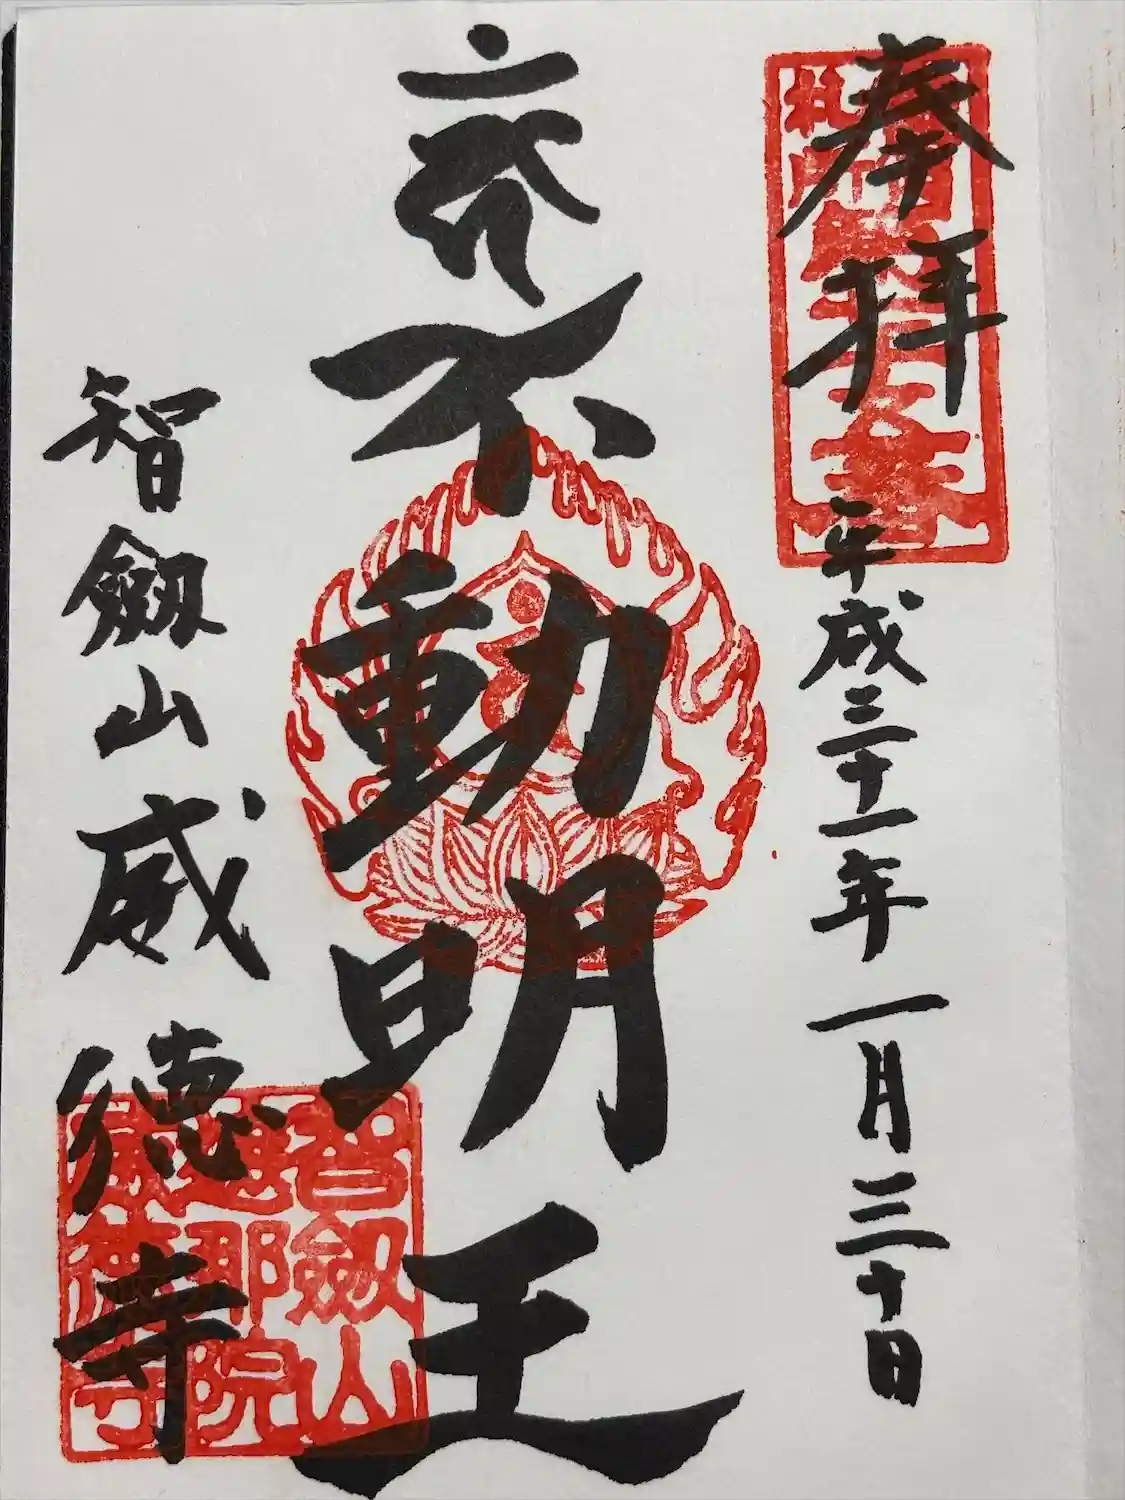 奉拝
平成三十一年一月三十日
不動明王
智劔山威徳寺
札所
智劔山
院
寺